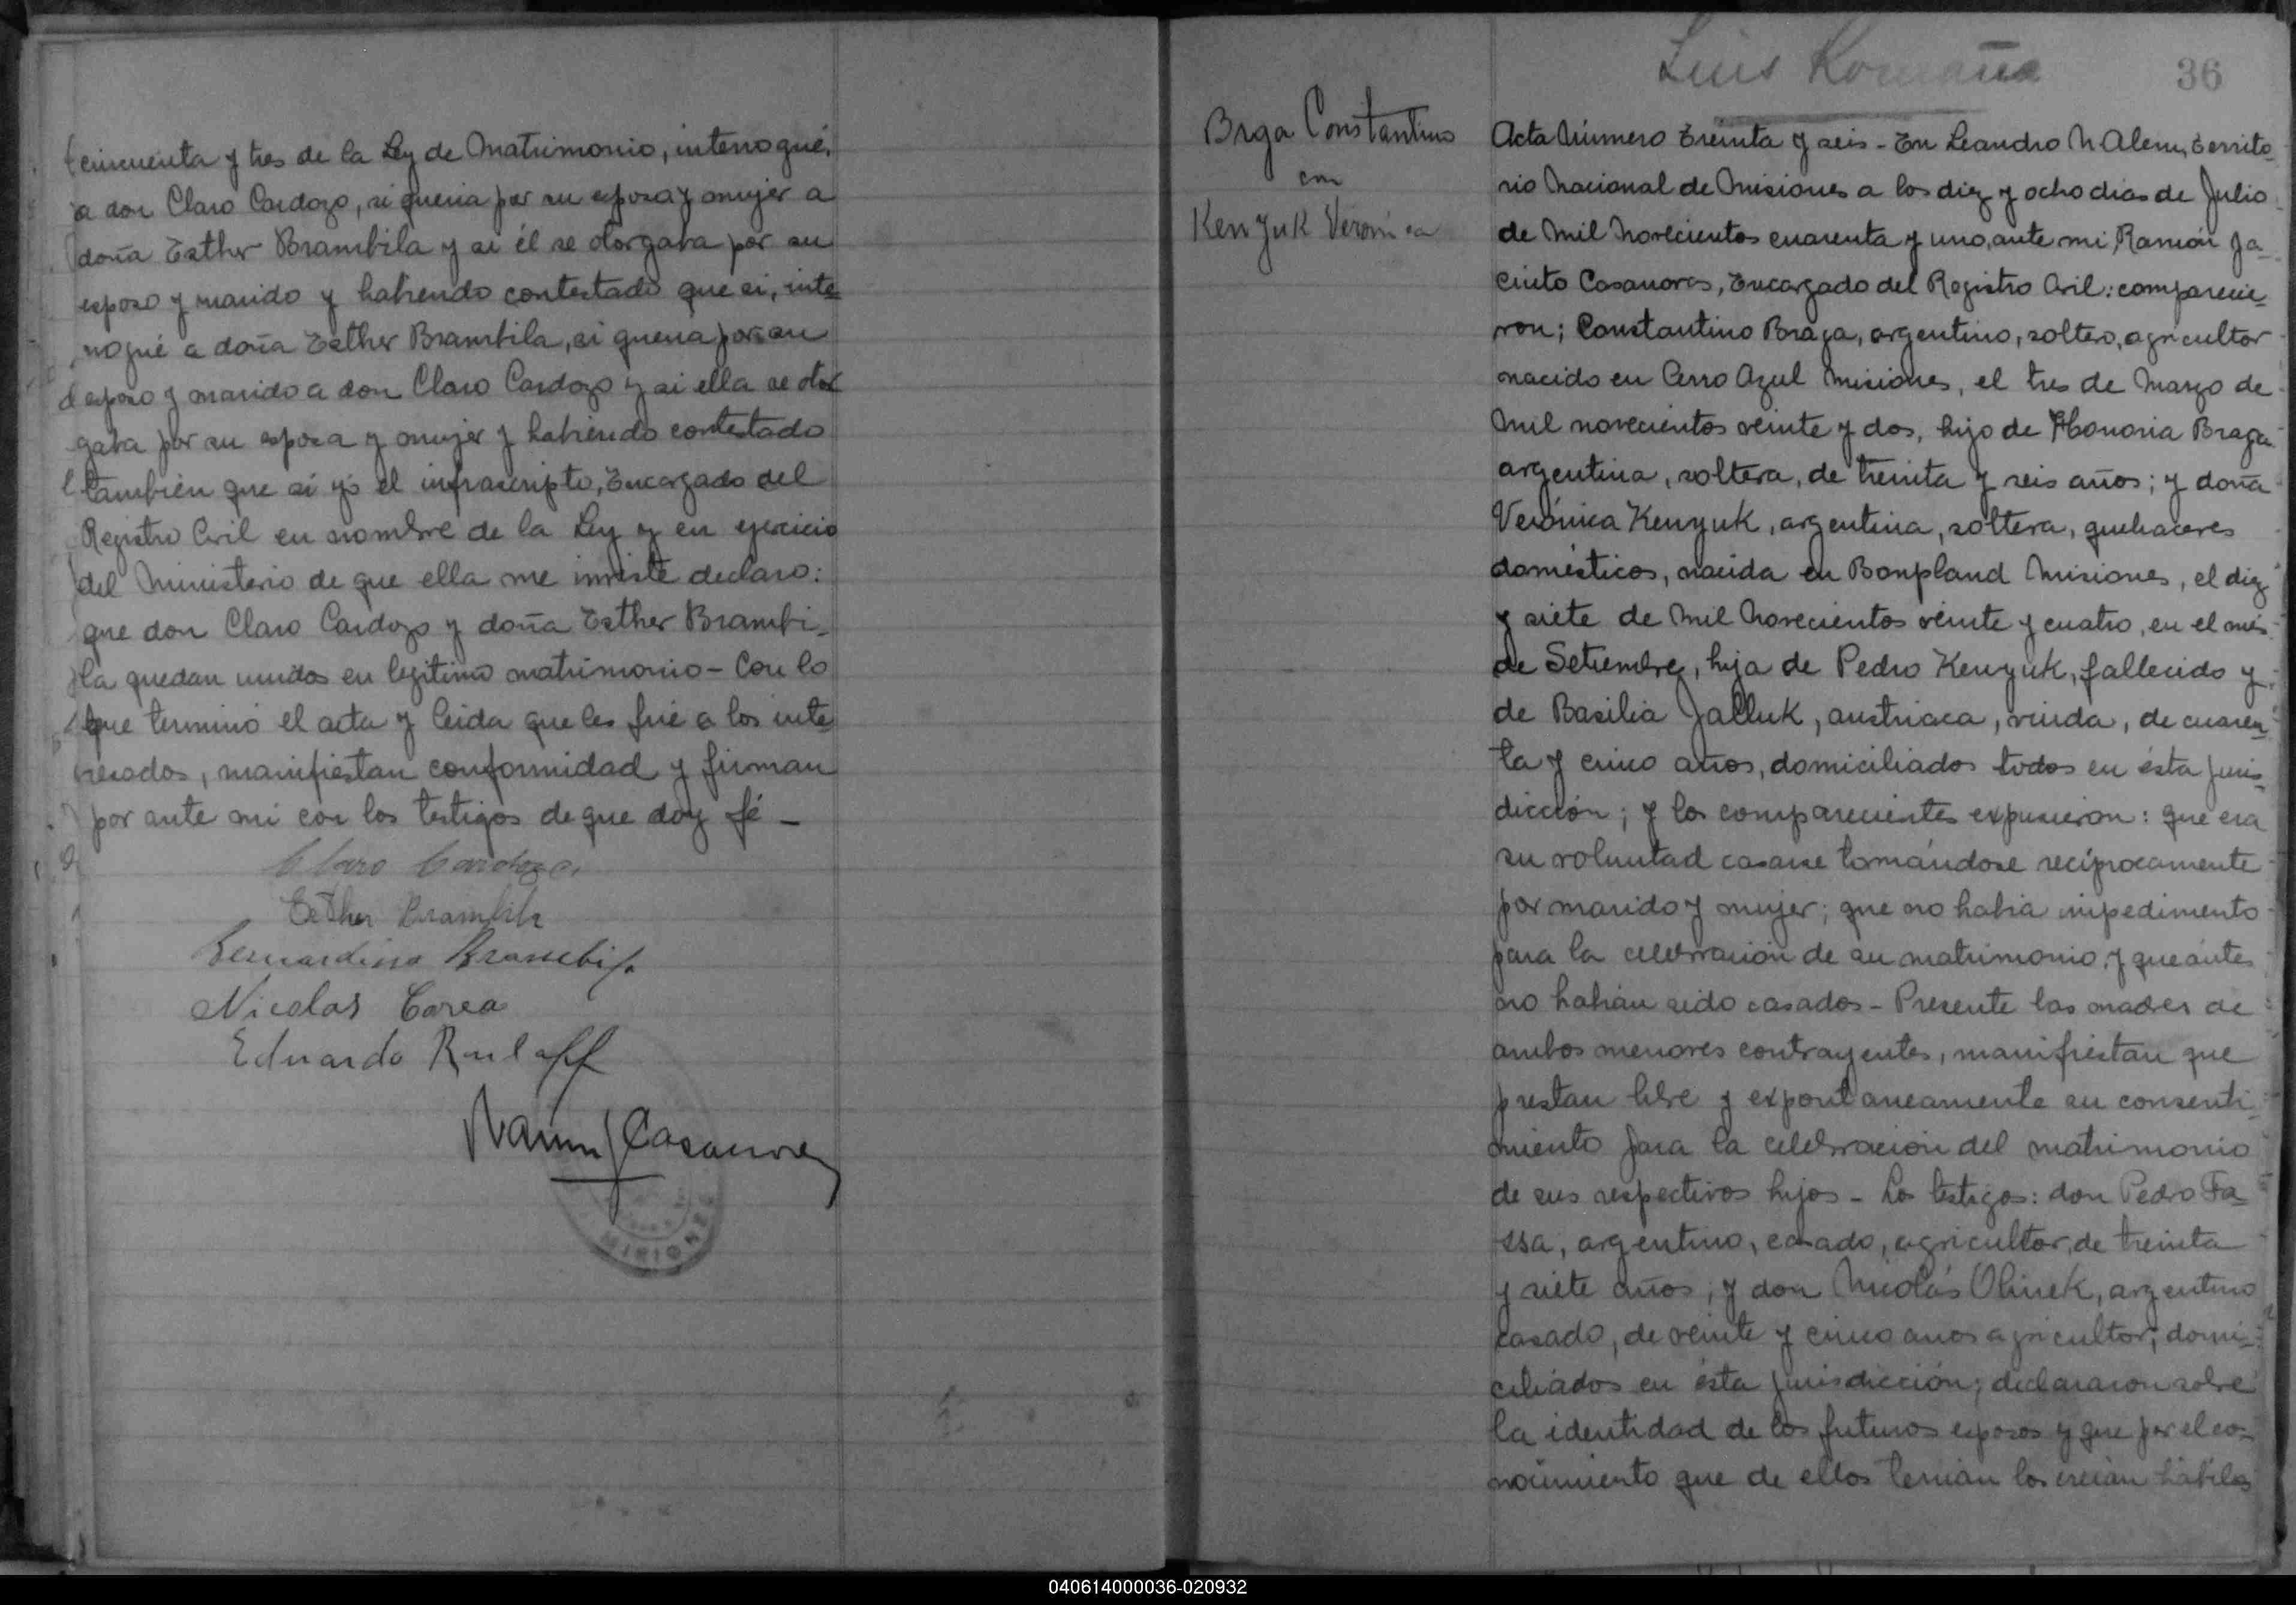 cincuenta y tres de la Ley de Matrimonio, interrogué,
a don Claro Cardozo, si queria por su esposa y mujer a
doña Esther Brambila y si él se otorgaba por su
esposo y marido y habiendo contestado que si, inte-
rrogué a doña Esther Brambila, si queria por su
esposo y marido a don Claro Cardozo y si ella se otor
gaba por su esposa y mujer y habiendo contestado
también que si yo el infrascripto, Encargado del
Registro Civil en nombre de la Ley y en ejercicio
del Ministerio de que ella me inviste declaro:
que don Claro Cardozo y doña Esther Brambi-
la quedan unidos en legitimo matrimonio - Con lo
que terminó el acta y leida que les fué a los inte
resados, manifiestan conformidad y firman
por ante mi con los testigos de que doy fé -
Claro Cardozo
Esther Brambila
Bernardino Brambila
Nicolas Corea
Eduardo Rulaff
Ramon J Casanova
MISIONES
Luis Romaña
36
Brga Constantino
con
Kenzuk Veronica
Acta Número Treinta y seis - En Leandro N Alem, Territo-
rio Nacional de Misiones a los diez y ocho dias de Julio
de Mil Novecientos cuarenta y uno, ante mi, Ramón Ja-
cinto Casanova, Encargado del Registro Civil: comparecie-
ron; Constantino Braga, argentino, soltero, agricultor
nacido en Cerro Azul Misiones, el tres de Marzo de
Mil novecientos veinte y dos, hijo de Honoria Braga
argentina, soltera, de treinta y seis años; y doña
Verónica Kenzuk, argentina, soltera, quehaceres
domésticos, nacida en Bonpland Misiones, el diez
y siete de Mil Novecientos veinte y cuatro, en el mes
de Setiembre, hija de Pedro Kenzuk, fallecido y
de Basilia Jalluk, austriaca, viuda, de cuaren-
ta y cinco años, domiciliados todos en ésta juris-
dicción; y los comparecientes expusieron: que era
su voluntad casarse tomándose recíprocamente
por marido y mujer; que no habia impedimento
para la celebración de su matrimonio, y que antes
no habian sido casados - Presente las madres de
ambos menores contrayentes, manifiestan que
prestan libre y expontaneamente su consenti-
miento para la celebración del matrimonio
de sus respectivos hijos - Los testigos: don Pedro Fa-
ssa, argentino, casado, agricultor, de treinta
y siete años; y don Nicolás Olinek, argentino
casado, de veinte y cinco anos agricultor; domi-
ciliádos en ésta jurisdicción; declararon sobre
la identidad de los futuros esposos y que por el co-
nocimiento que de ellos tenian los creian hábiles
040614000036-020932